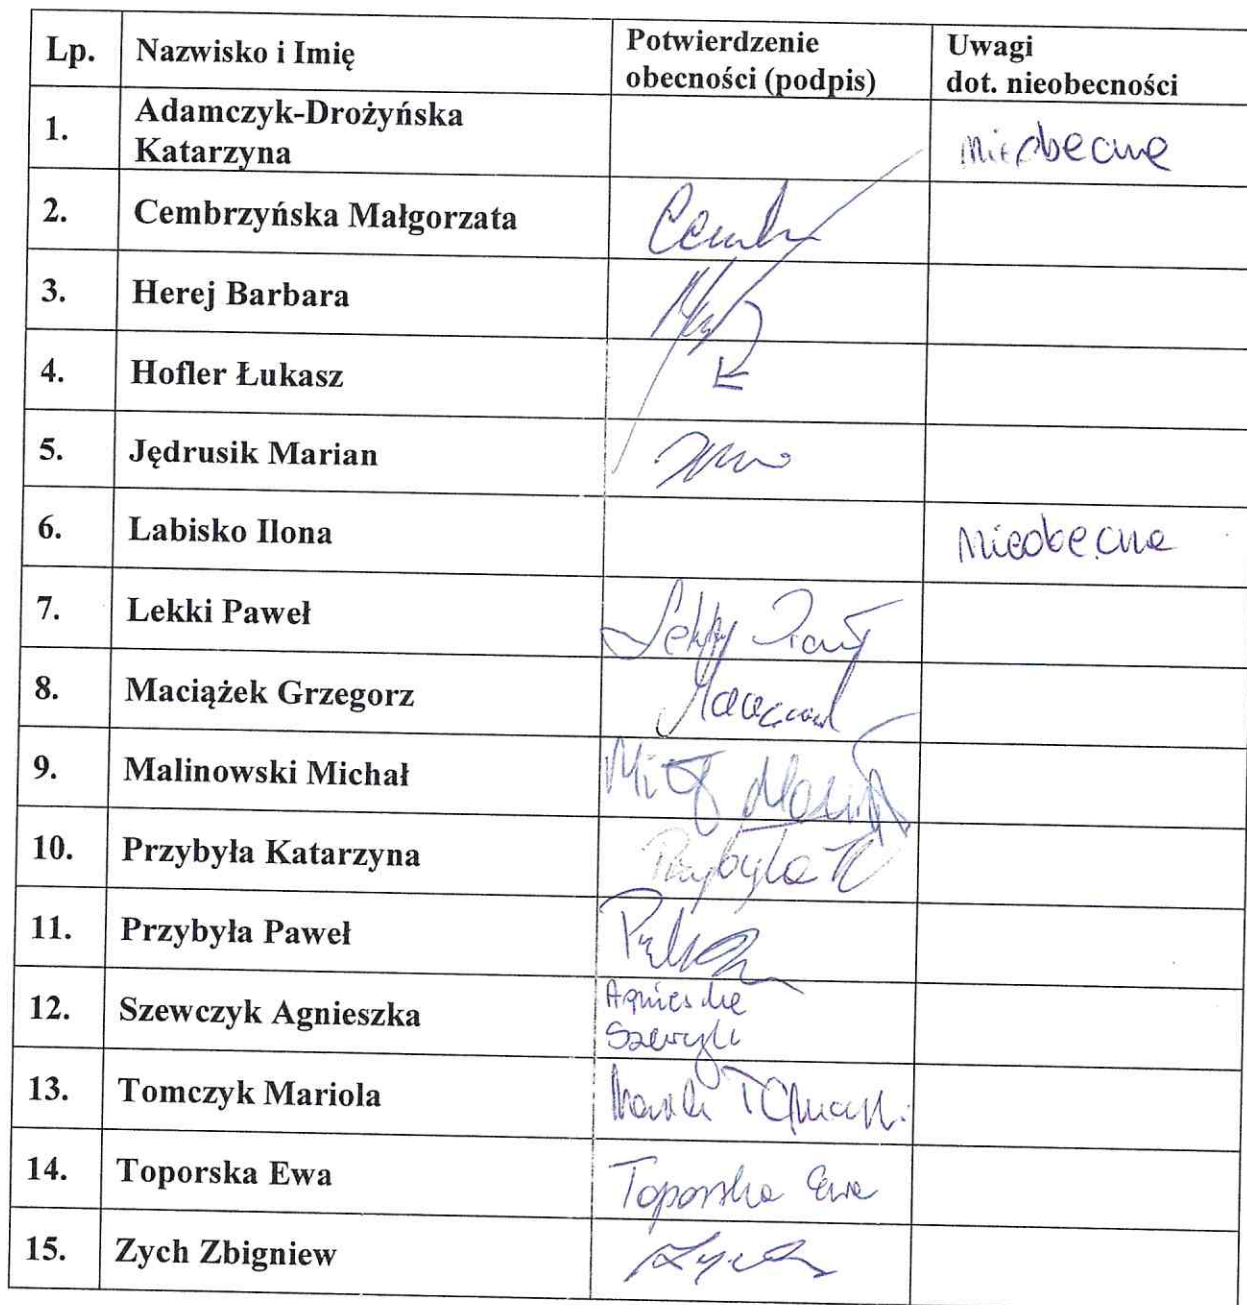 Lp. Nazwisko i Imię Potwierdzenie obecności (podpis) Uwagi dot. nieobecności
1. Adamczyk-Drożyńska Katarzyna nieobecna
2. Cembrzyńska Małgorzata
3. Herej Barbara
4. Hofler Łukasz
5. Jędrusik Marian
6. Labisko Ilona nieobecna
7. Lekki Paweł
8. Maciążek Grzegorz
9. Malinowski Michał
10. Przybyła Katarzyna Przybyła K
11. Przybyła Paweł
12. Szewczyk Agnieszka Agnieszka
Szewczyk
13. Tomczyk Mariola
14. Toporska Ewa Toporska Ewa
15. Zych Zbigniew Zych